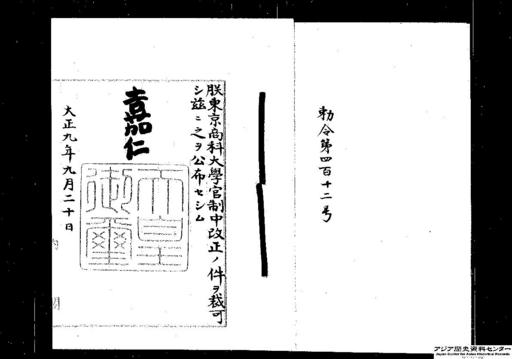 勅令第四百十二号
朕東京商科大學官制中改正ノ件ヲ裁可
シ茲ニ之ヲ公布セシム
嘉仁
天皇御璽
大正九年九月二十日
アジア歴史資料センター
Japan Center for Asian Historical Records